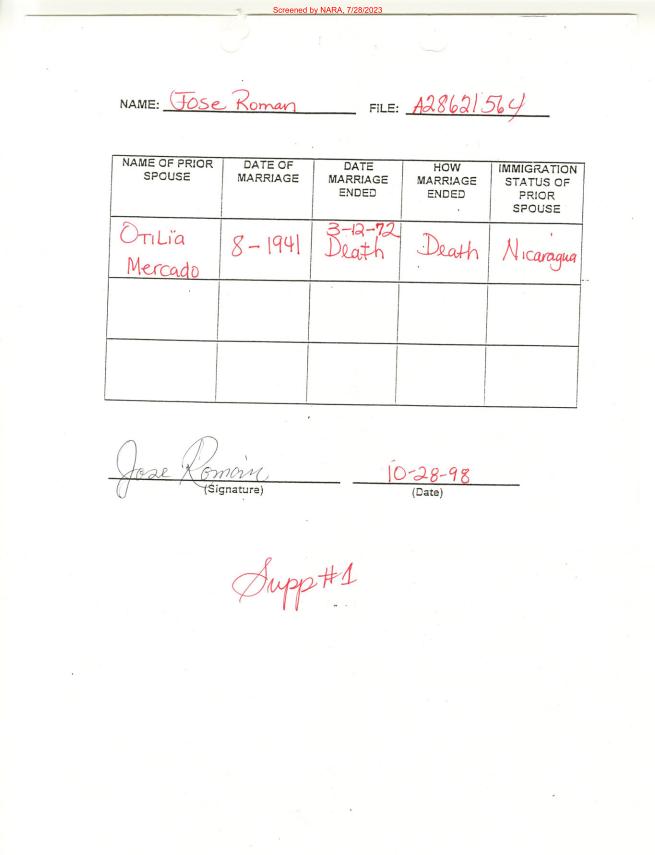 Screened by NARA, 7/28/2023
NAME: Jose Roman FILE: A28621564
NAME OF PRIOR SPOUSE DATE OF MARRIAGE DATE MARRIAGE ENDED HOW MARRIAGE ENDED IMMIGRATION STATUS OF PRIOR SPOUSE
Otilia Mercado 8-1941 3-12-72 Death Death Nicaragua
Jose Roman 10-28-98
(Signature) (Date)
Supp #1